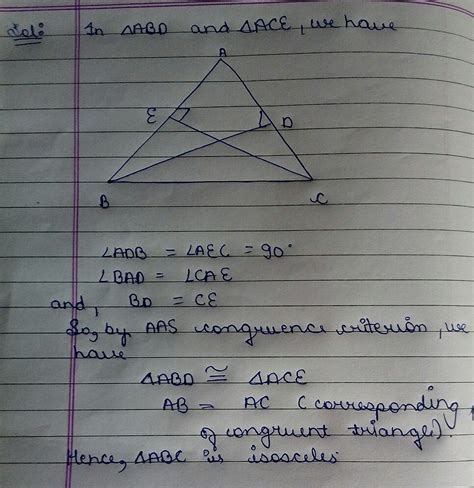 Sol: In △ABD and △ACE, we have
A
E
D
B
C
∠ADB = ∠AEC = 90°
∠BAD = ∠CAE
and, BD = CE
So, by AAS congruence criterion, we
have
△ABD ≅ △ACE
AB = AC (corresponding
of congruent triangle).
Hence, △ABC is isosceles